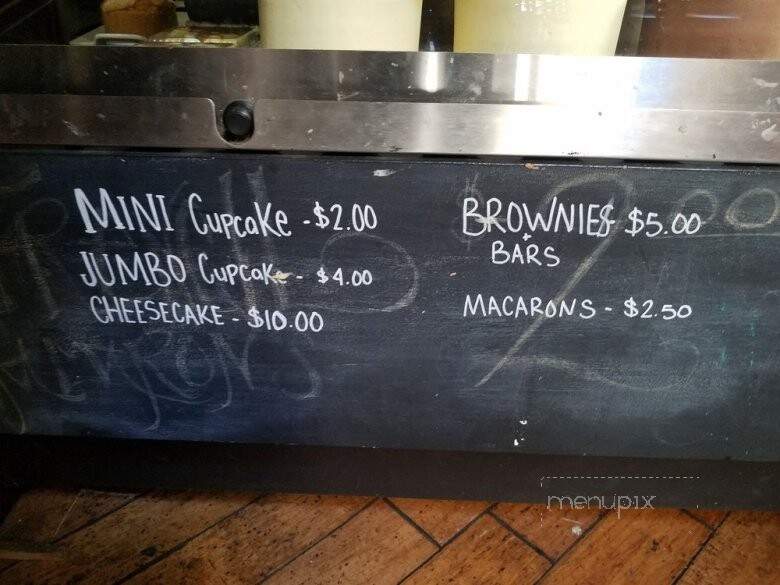 MINI Cupcake - $2.00
JUMBO Cupcake - $4.00
CHEESECAKE - $10.00
BROWNIES $5.00
+
BARS
MACARONS - $2.50
menupix